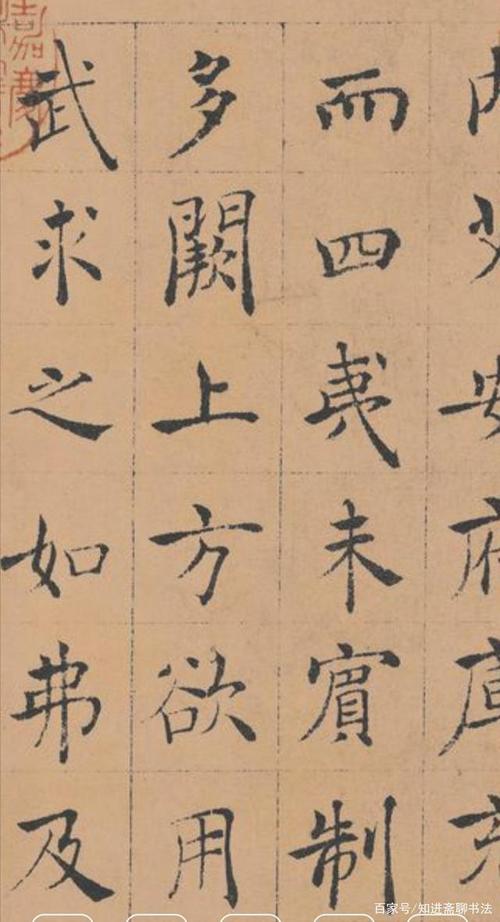 安府
而四夷未賓制
多闕上方欲用
武求之如弗及
百家号/知进斋聊书法